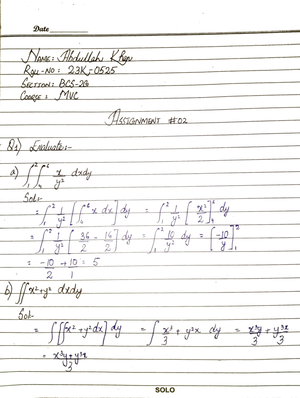 Date
Name: Abdullah Khan
Roll-No: 23K-0525
Section: BCS-2G
Course: MVC
Assignment #02
Q1) Evaluate:-
a) ∫₁² ∫₄⁶ x/y² dxdy
Sol:-
= ∫₁² 1/y² [∫₄⁶ x dx] dy = ∫₁² 1/y² [x²/2]₄⁶ dy
= ∫₁² 1/y² [36/2 - 16/2] dy = ∫₁² 10/y² dy = [-10/y]₁²
= -10/2 + 10/1 = 5
b) ∫∫ x² + y² dxdy
Sol:-
= ∫ [∫ x² + y² dx] dy = ∫ x³/3 + y²x dy = x³y/3 + y³x/3
= x³y + y³x/3
SOLO